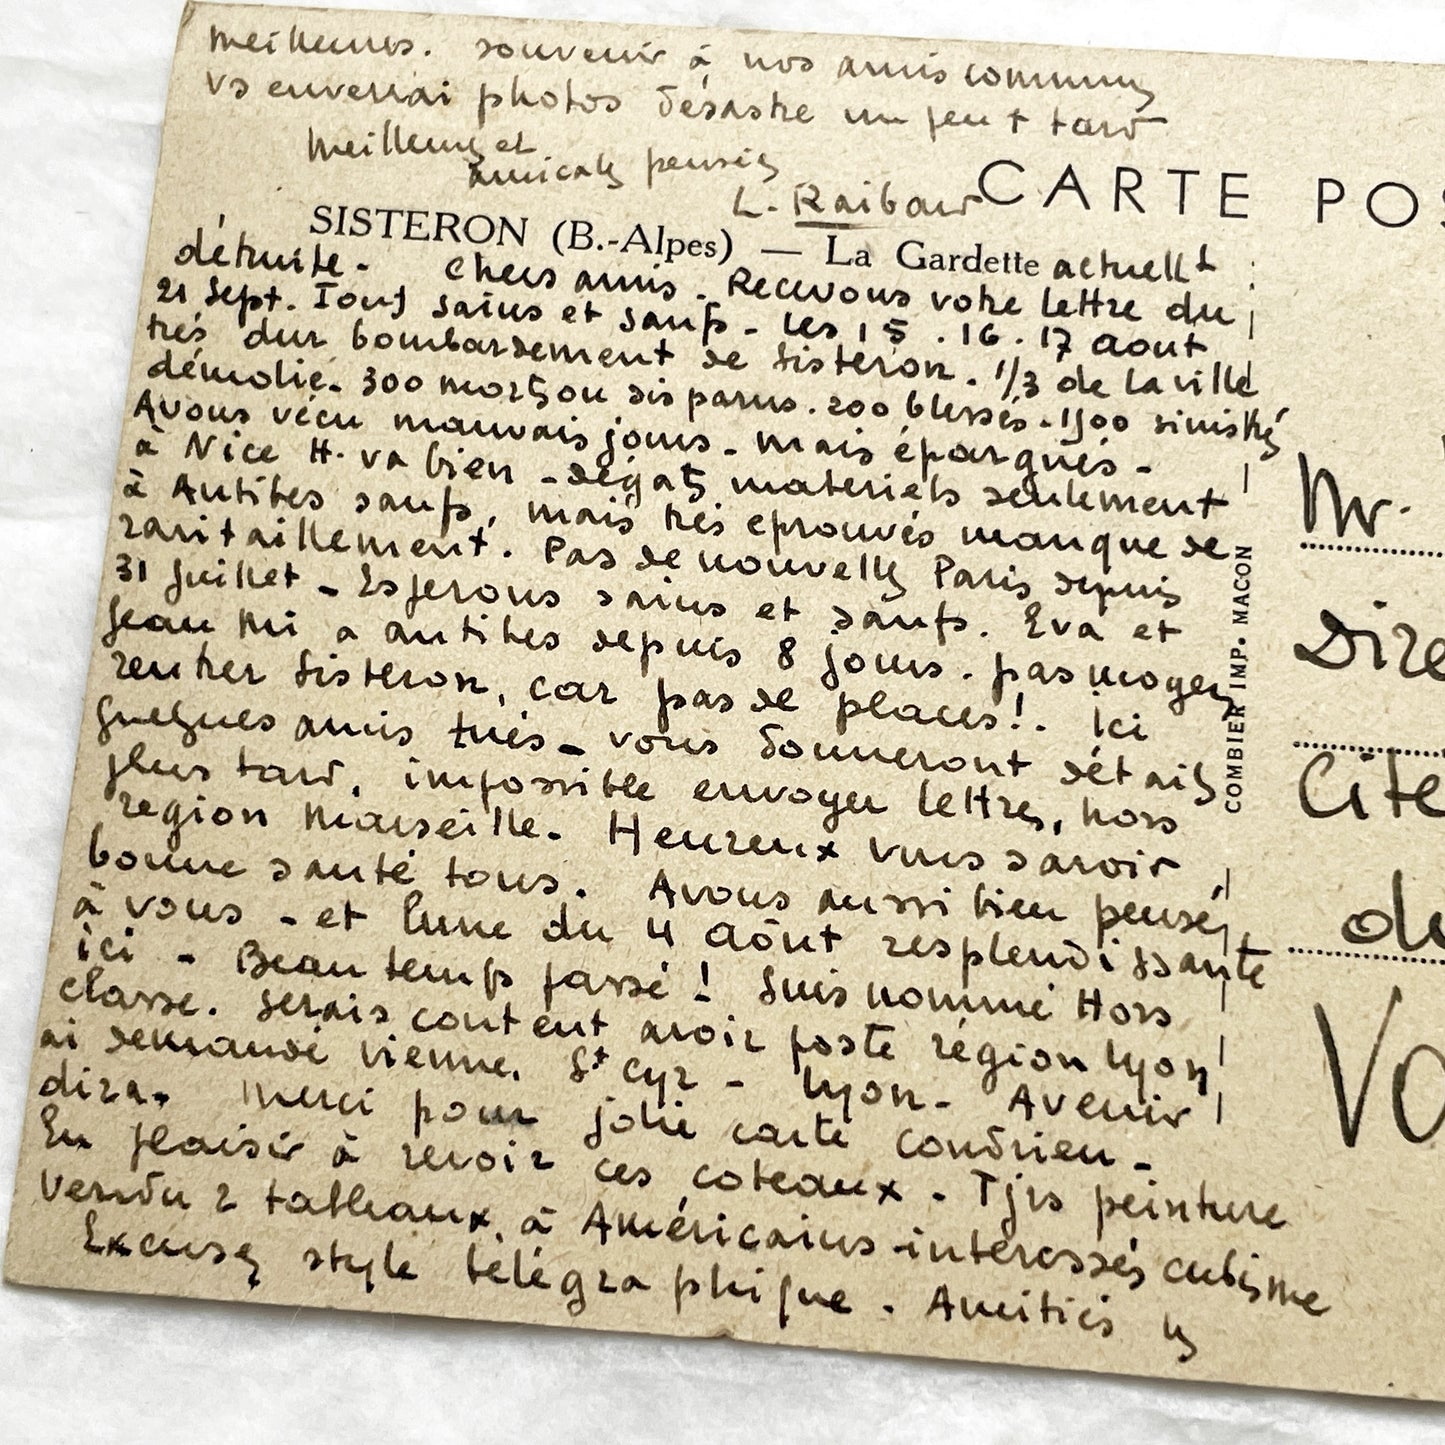 meilleures. souvenir à nos amis communs
vs enverrai photos désastre un peu + tard
Meilleures et
amicales pensées
L. Raibaud
CARTE POS
SISTERON (B.-Alpes) — La Gardette actuellt
détruite. Chers amis. Recevons votre lettre du
21 Sept. Tous sains et saufs - Les 15. 16. 17 Aout
très dur bombardement de Sisteron. 1/3 de la ville
démolie. 300 morts ou disparus. 200 blessés. 1500 sinistrés
Avons vécu mauvais jours - mais épargnés -
à Nice H. va bien - dégats materiels seulement
à Antibes saufs, mais très eprouvés manque de
ravitaillement. Pas de nouvelles Paris depuis
31 Juillet - Esperons sains et saufs. Eva et
Jean Mi a antibes depuis 8 jours. pas moyen
rentrer Sisteron, car pas de places!. Ici
quelques amis tués - vous donneront détails
plus tard, impossible envoyer lettres, hors
region Marseille. Heureux vous savoir
bonne santé tous. Avons aussi bien pensé,
à vous - et lune du 4 Aôut resplendissante
ici - Beau temps passé! Suis nommé Hors
classe. Serais content avoir poste région Lyon
ai demandé Vienne. St Cyr - Lyon - Avenir
dira. Merci pour jolie carte Condrieu -
En plaisir à revoir ces coteaux. Tjrs peinture
Vendu 2 tableaux, à Américains intéressés cubisme
Excuses style télégraphique. Amitiés
COMBIER IMP. MACON
Mr.
Dire
Cite
du
Vo